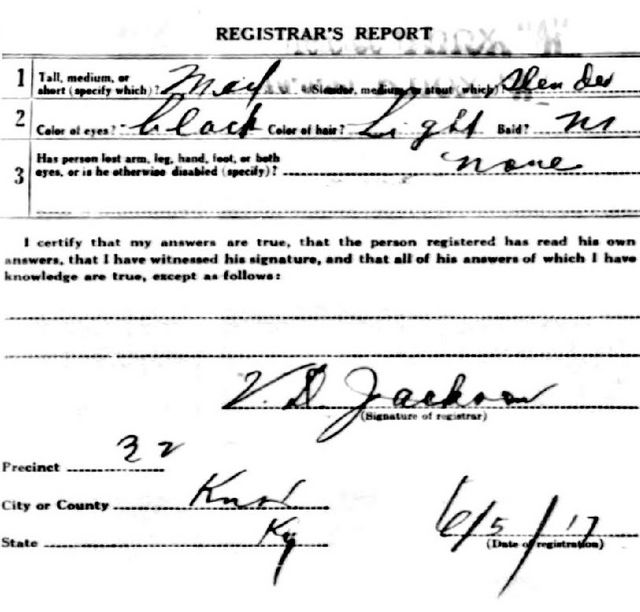 REGISTRAR'S REPORT
1 Tall, medium, or short (specify which)? Med Slender, medium, or stout (which)? Slender
2 Color of eyes? black Color of hair? Light Bald? no
3 Has person lost arm, leg, hand, foot, or both eyes, or is he otherwise disabled (specify)? none
I certify that my answers are true, that the person registered has read his own
answers, that I have witnessed his signature, and that all of his answers of which I have
knowledge are true, except as follows:
V. D. Jackson
(Signature of registrar)
Precinct 32
City or County Knox
State Ky
6/5/17
(Date of registration)